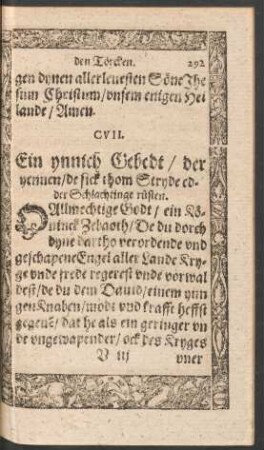 den Törcken. 292
gen dynen allerleuesten Söne Jhe
sum Christum/ vnsem enigen Hei
lande/ Amen.
CVII.
Ein ynnich Gebedt/ der
yennen/ de sick thom Stryde ed-
der Schlachtinge rüsten.
O Allmechtige Godt/ ein Kö-
ninck Zebaoth/ De du dorch
dyne dartho verordende vnd
geschapene Engel aller Lande Kry-
ge vnde frede regerest vnde vorwal
dest/ de du dem Dauid/ einem yun
gen Knaben/ modt vnd krafft heffst
gegeuē/ dat he als ein geringer vn
de vngewapender/ ock des Kryges
V iij vner